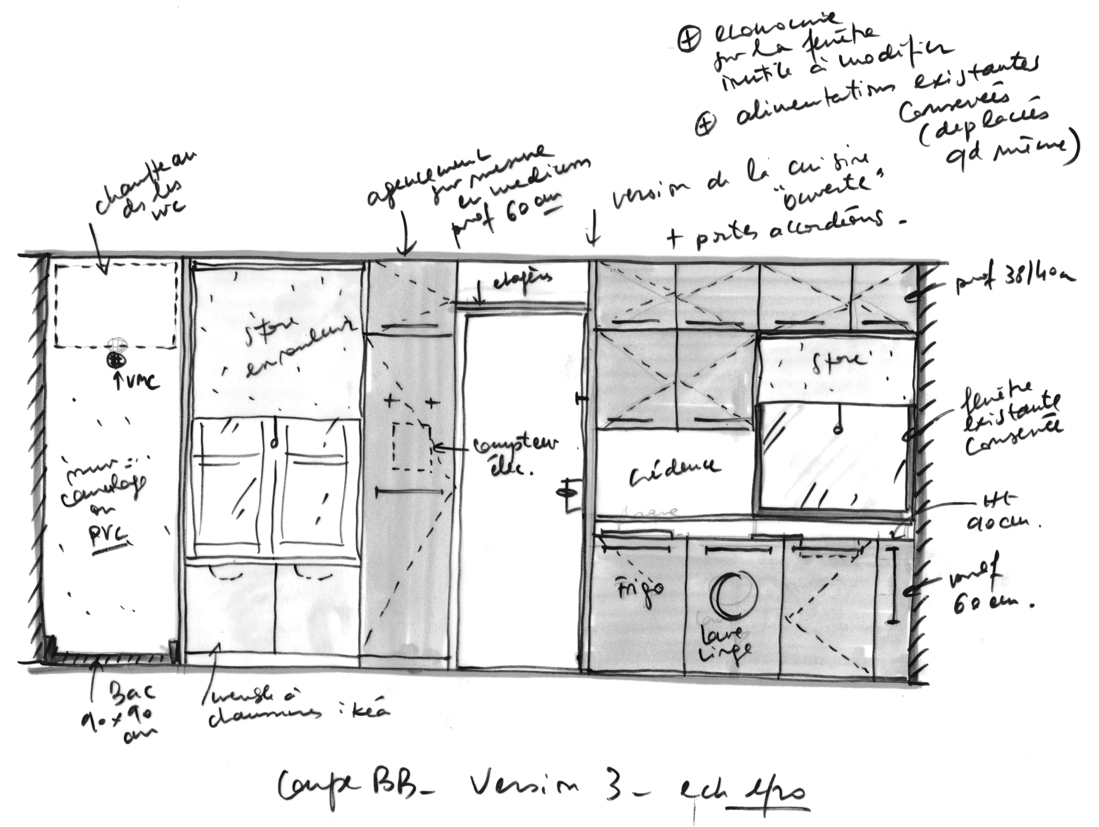 ⊕ économie
sur la fenêtre
inutile à modifier
⊕ alimentations existantes
conservées
(déplacées
qd même)
chauffe au
ds les
wc
agencement
sur mesure
en medium
prof 60 cm
version de la cuisine
"ouverte"
+ portes accordéons -
étagère
prof 38/40 cm
store
enrouleur
store
VMC
fenêtre
existante
conservée
compteur
élec.
crédence
mur
carrelage
ou
PVC
Ht
90 cm.
Frigo
Lave
linge
prof
60 cm.
Bac
90 x 90
cm
meuble à
chaussures : ikéa
Coupe BB - Version 3 - ech